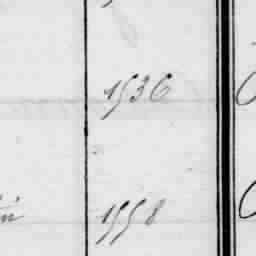 1536
1558